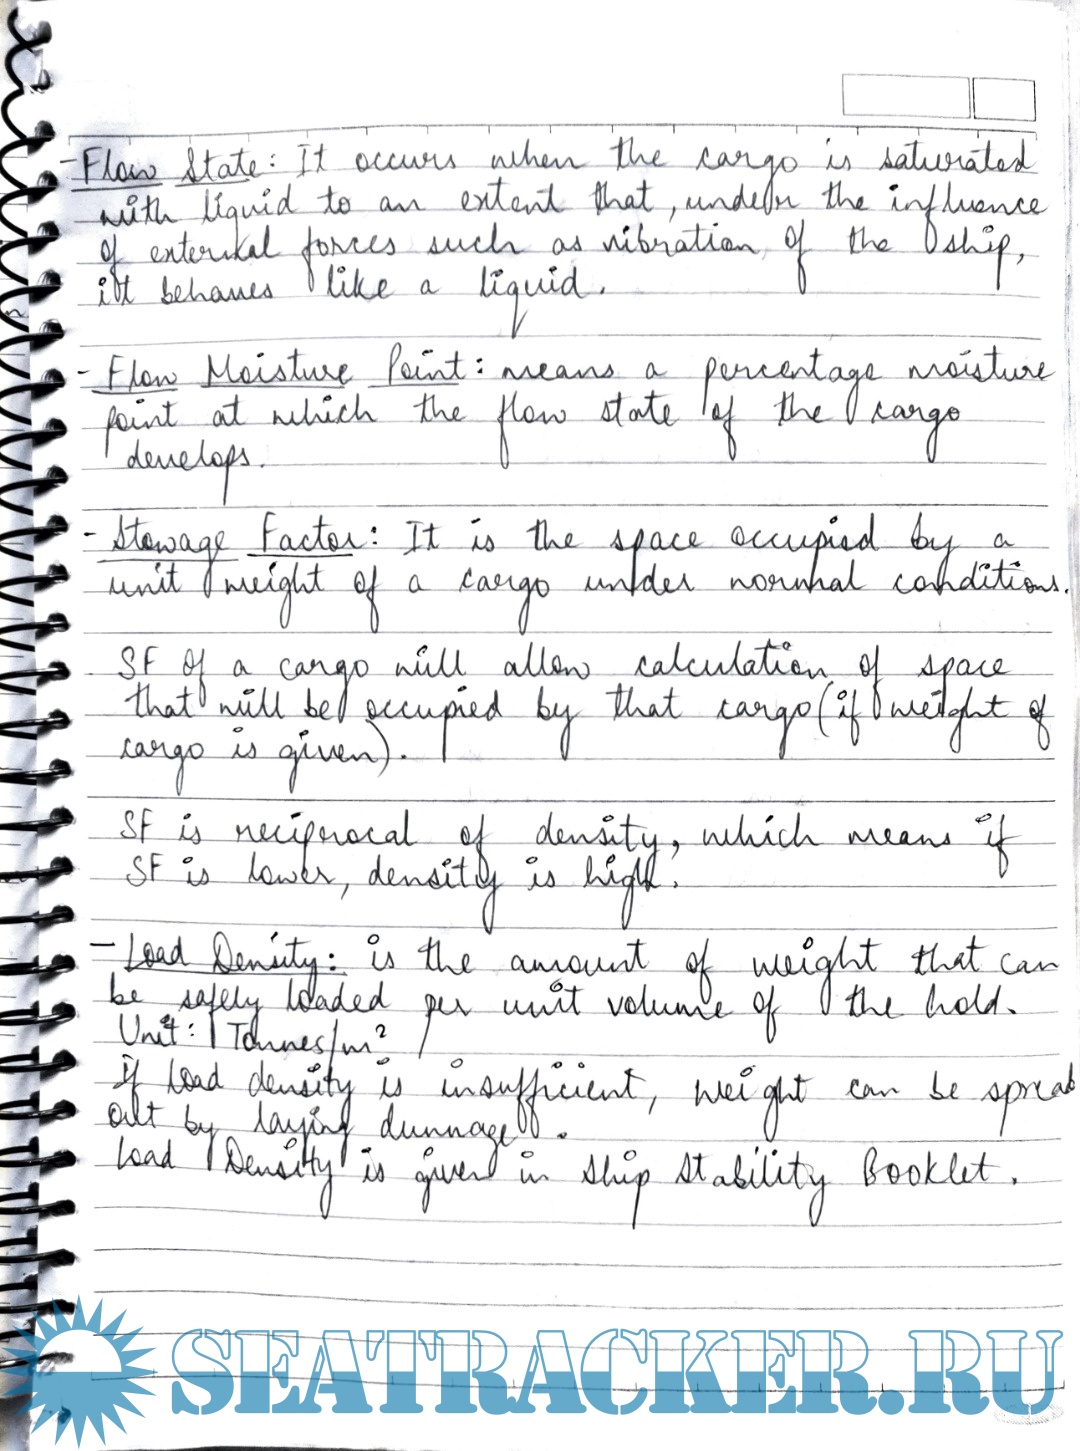 - Flow State: It occurs when the cargo is saturated
with liquid to an extent that, under the influence
of external forces such as vibration of the ship,
it behaves like a liquid.
- Flow Moisture Point: means a percentage moisture
point at which the flow state of the cargo
develops.
- Stowage Factor: It is the space occupied by a
unit weight of a cargo under normal conditions.
SF of a cargo will allow calculation of space
that will be occupied by that cargo (if weight of
cargo is given).
SF is reciprocal of density, which means if
SF is lower, density is high.
- Load Density: is the amount of weight that can
be safely loaded per unit volume of the hold.
Unit: Tonnes/m²
If load density is insufficient, weight can be spread
out by laying dunnage.
Load Density is given in Ship Stability Booklet.
SEATRACKER.RU